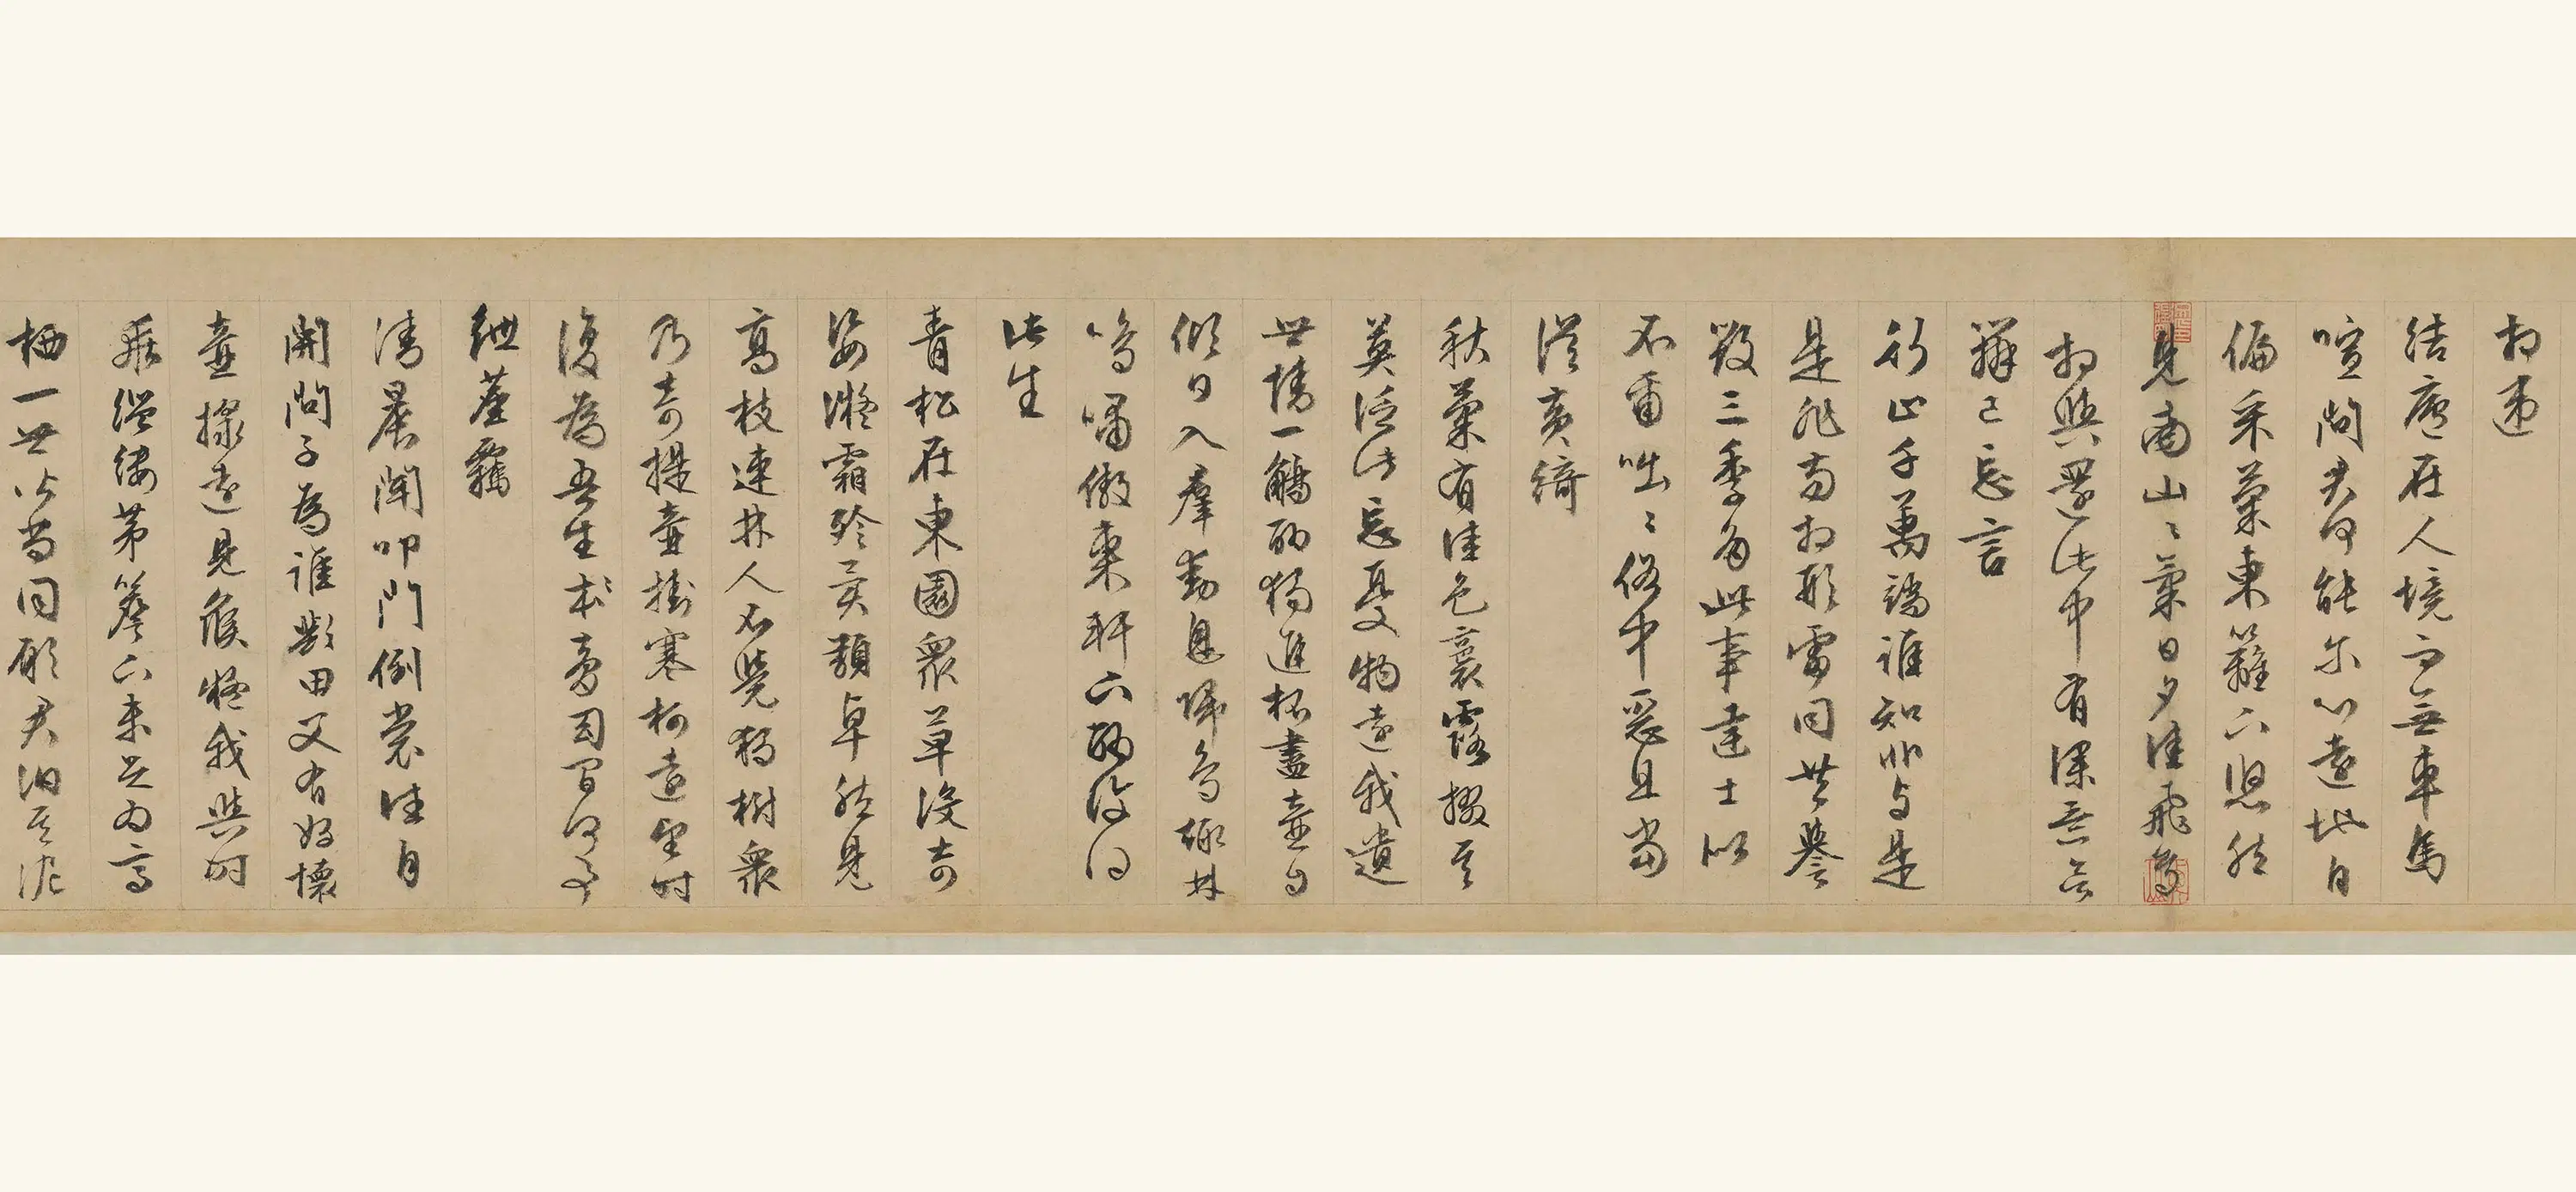 相違
結廬在人境而無車馬
喧問君何能爾心遠地自
偏采菊東籬下悠然
見南山々氣日夕佳飛鳥
相與還此中有深意欲
辯已忘言
行止千萬端誰知非与是
是非苟相形雷同共譽
毀三季多此事達士似
不爾咄々俗中惡且當
從黃綺
秋菊有佳色裛露掇其
英泛此忘憂物遠我遺
世情一觴雖獨進杯盡壺自
傾日入羣動息歸鳥趨林
鳴嘯傲東軒下聊復得
此生
青松在東園衆草沒奇
姿凝霜殄異類卓然見
高枝連林人不覺獨樹衆
乃奇提壺掛寒柯遠望時
復為吾生夢幻間何事
紲塵羈
清晨聞叩門倒裳往自
開問子為誰歟田父有好懷
壺漿遠見候疑我與時
乖繿縷茅簷下未足為高
栖一世皆尚同願君汩其泥